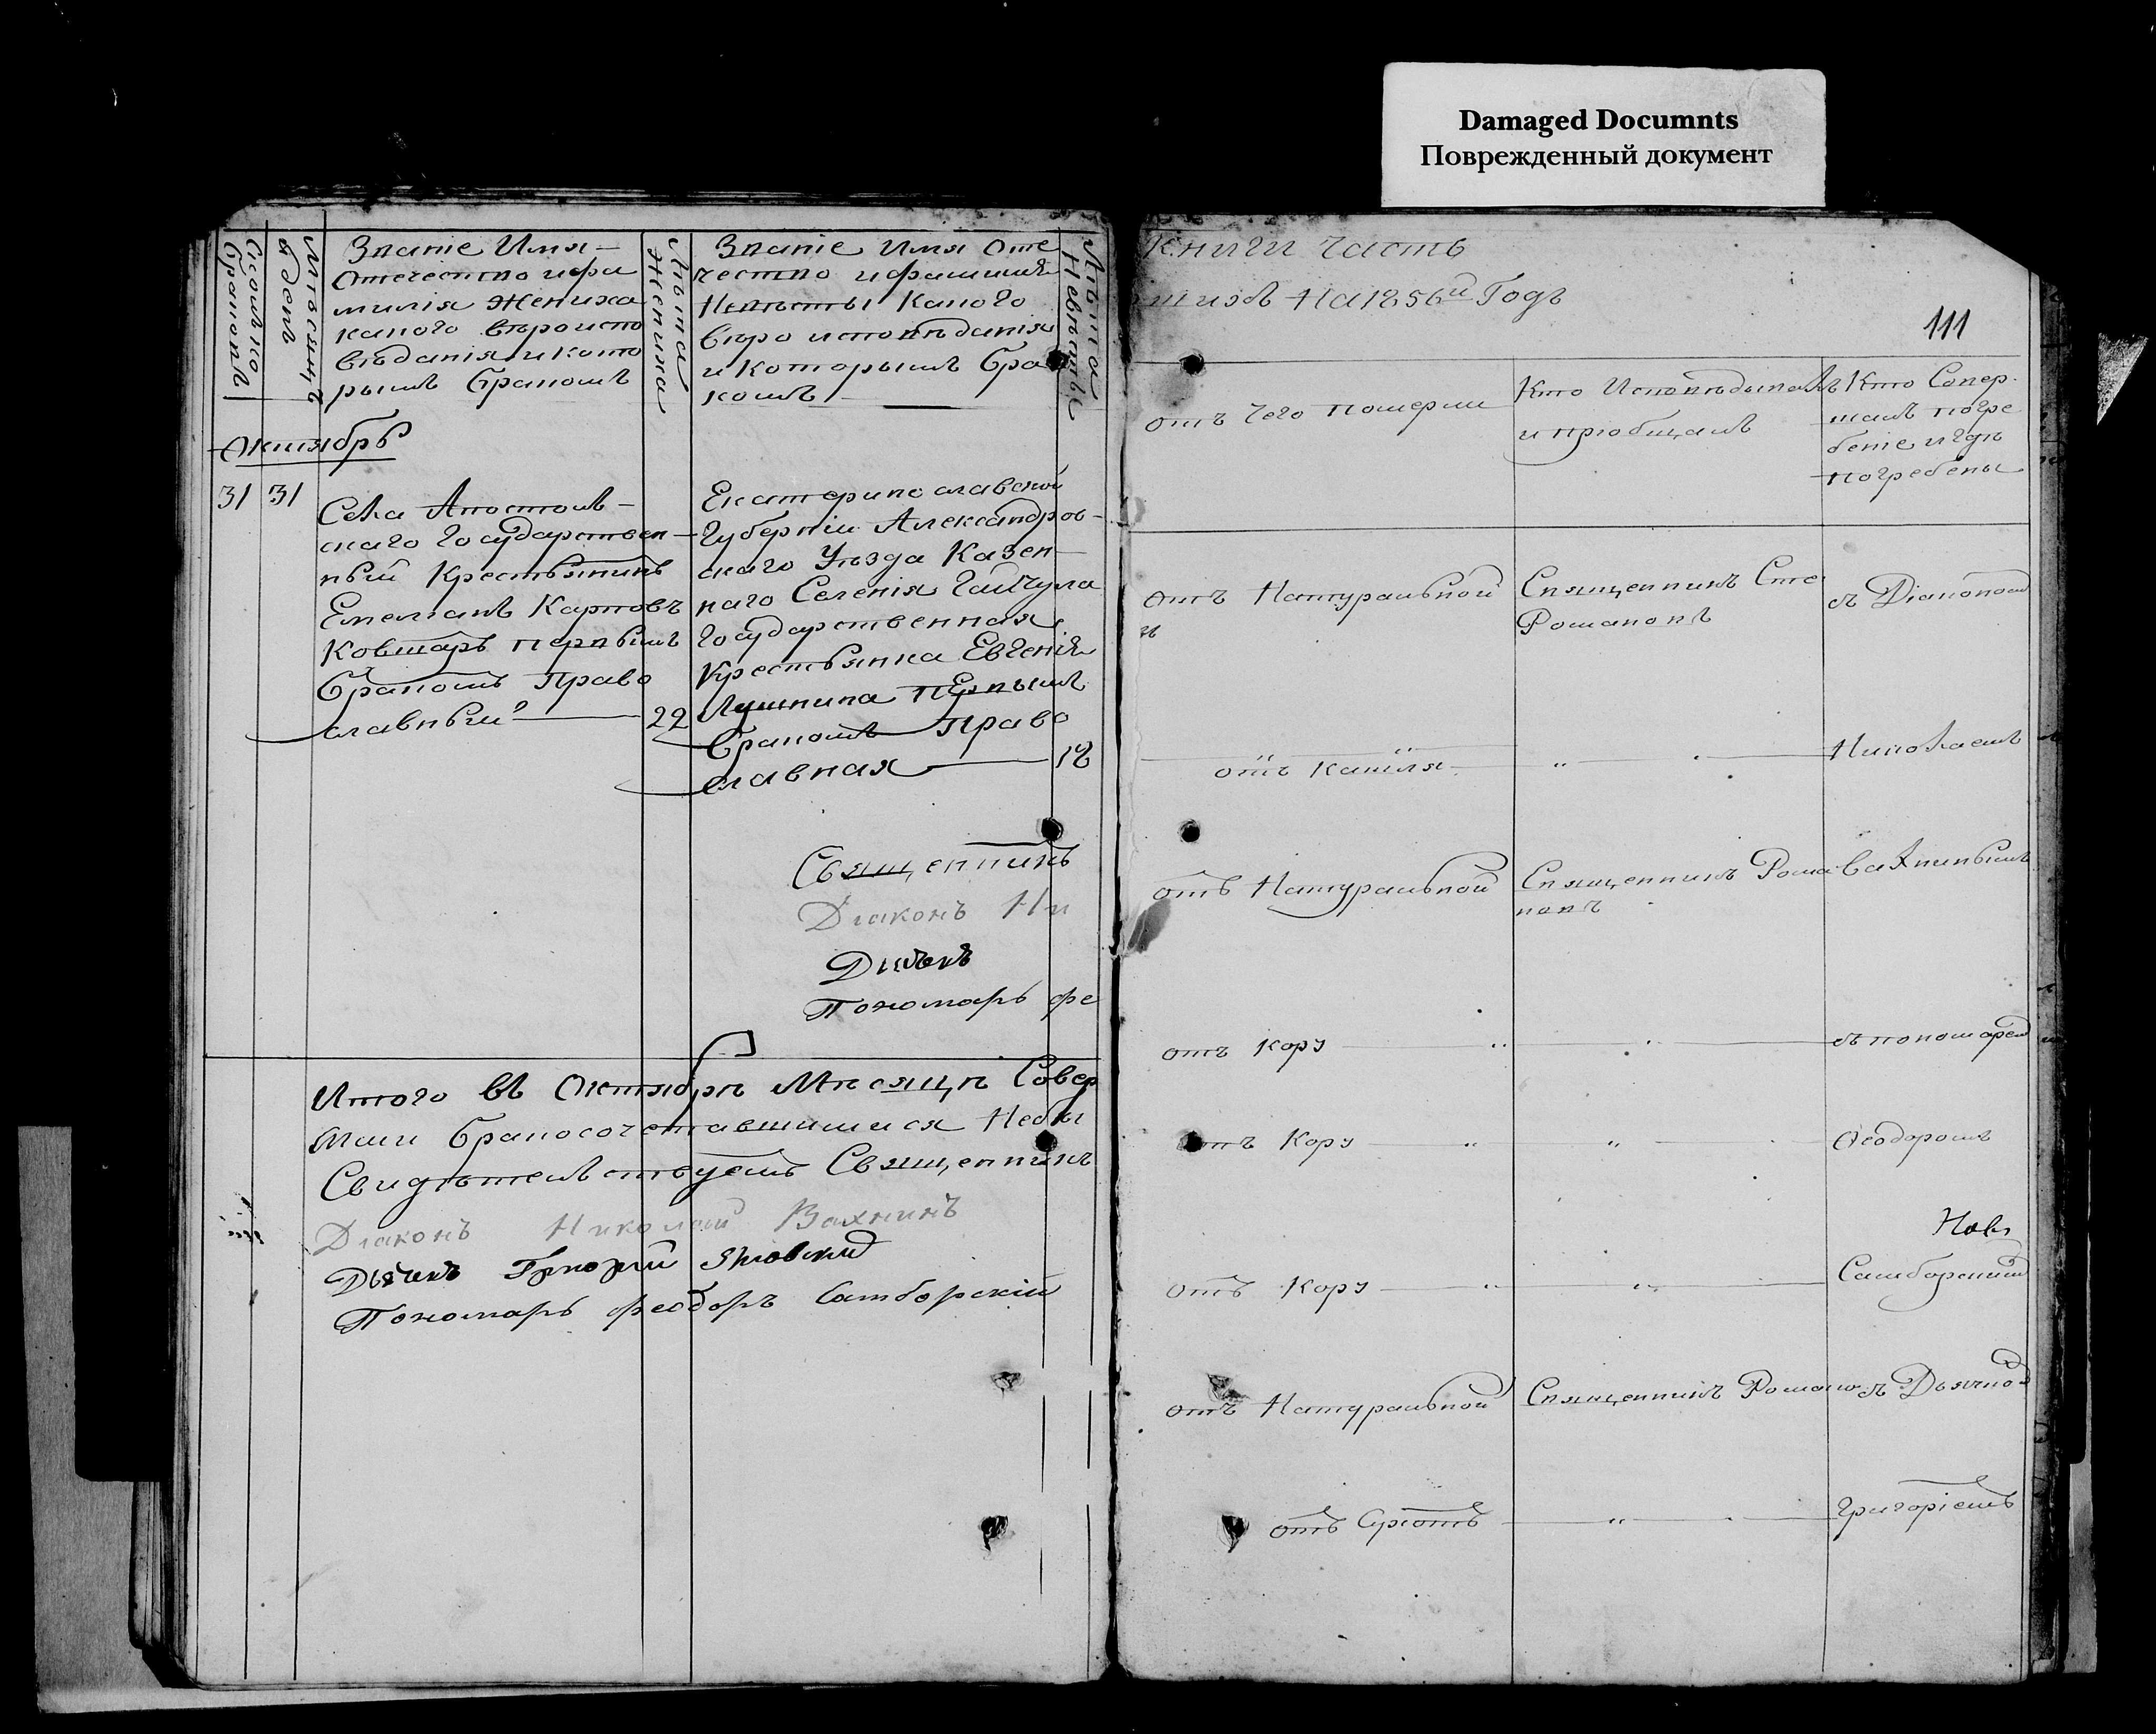 Damaged Documnts
Поврежденный документ
Сколько
браковъ
Мѣсяцъ
и день
Званіе Имя
Отечество и фа
милія Жениха
какого вѣроиспо
вѣданія и кото
рымъ бракомъ
Лѣта
Жениха
Званіе Имя Оте
чество и фамилія
Невѣсты какого
вѣро исповѣданія
и которымъ бра
комъ
Лѣта
Невѣсты
Октябрь
31 31
Села Апостол
скаго Государствен
ный Крестьянинъ
Емеліанъ Карповъ
Ковшарь первымъ
бракомъ право
славный 22
Екатеринославской
Губерніи Александров
скаго Уѣзда Казен
наго Селенія Гайчула
Государственная
Крестьянка Евгенія
первымъ
бракомъ право
славная 18
Священникъ
Діаконъ Ни
Дьячекъ
Пономарь Фе
Итого въ Октябрѣ Мѣсяцѣ Совер
бракосочетавшимися Небы
Свидѣтельствуемъ Священникъ
Діаконъ Николай Вахнинъ
Дьячекъ Григорій
Пономарь Феодоръ Самборскій
Книги часть
шихъ На 1856й Годъ
111
отъ чего померли
Кто Исповѣдывалъ
и пріобщалъ
Кто Совер
шалъ погре
беніе и гдѣ
погребены
отъ Натуральной
Священникъ Сте
Романовъ
съ Діакономъ
отъ кашля
Николаемъ
отъ Натуральной
Священникъ Рома
новъ
Вахнинымъ
отъ кору
съ пономарем
отъ Кору
Феодоромъ
отъ Кору
Самборскимъ
отъ Натуральной
Священникъ Романо
съ Дьячко
отъ
Григоріемъ